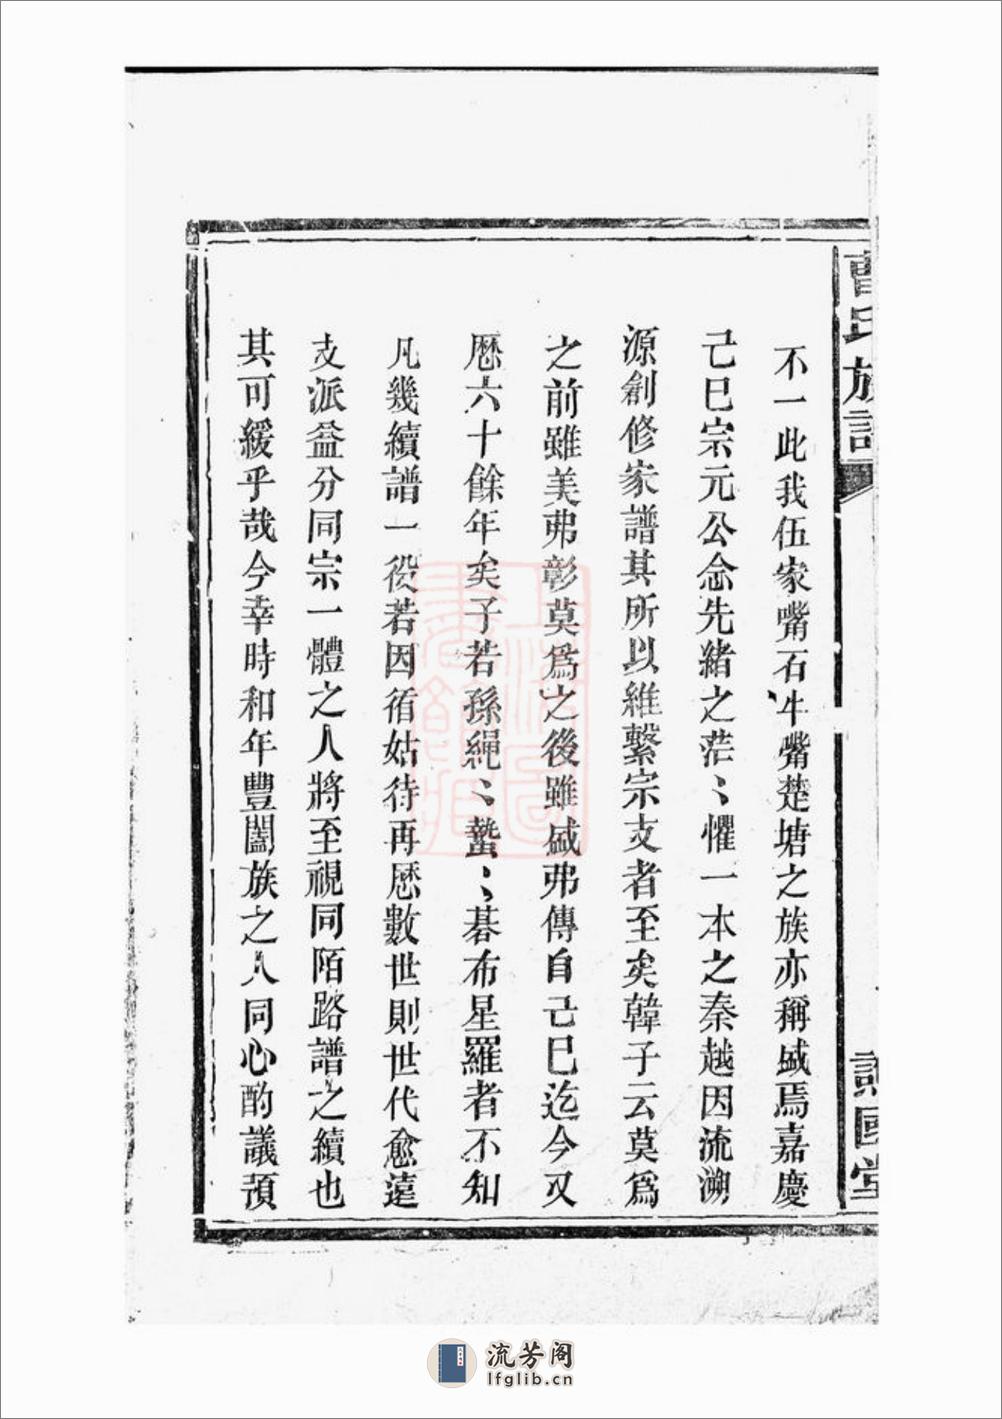 曹氏族譜
不一此我伍家嘴石牛嘴楚塘之族亦稱盛焉嘉慶
己巳宗元公念先緒之茫〻懼一本之秦越因流溯
源創修家譜其所以維繫宗支者至矣韓子云莫爲
之前雖美弗彰莫爲之後雖盛弗傳自己巳迄今又
歷六十餘年矣子若孫繩〻蟄〻碁布星羅者不知
凡幾續譜一役若因循姑待再歷數世則世代愈遠
支派益分同宗一體之人將至視同陌路譜之續也
其可緩乎哉今幸時和年豐闔族之人同心酌議預
國堂
上海圖書館藏
流芳阁
lfglib.cn